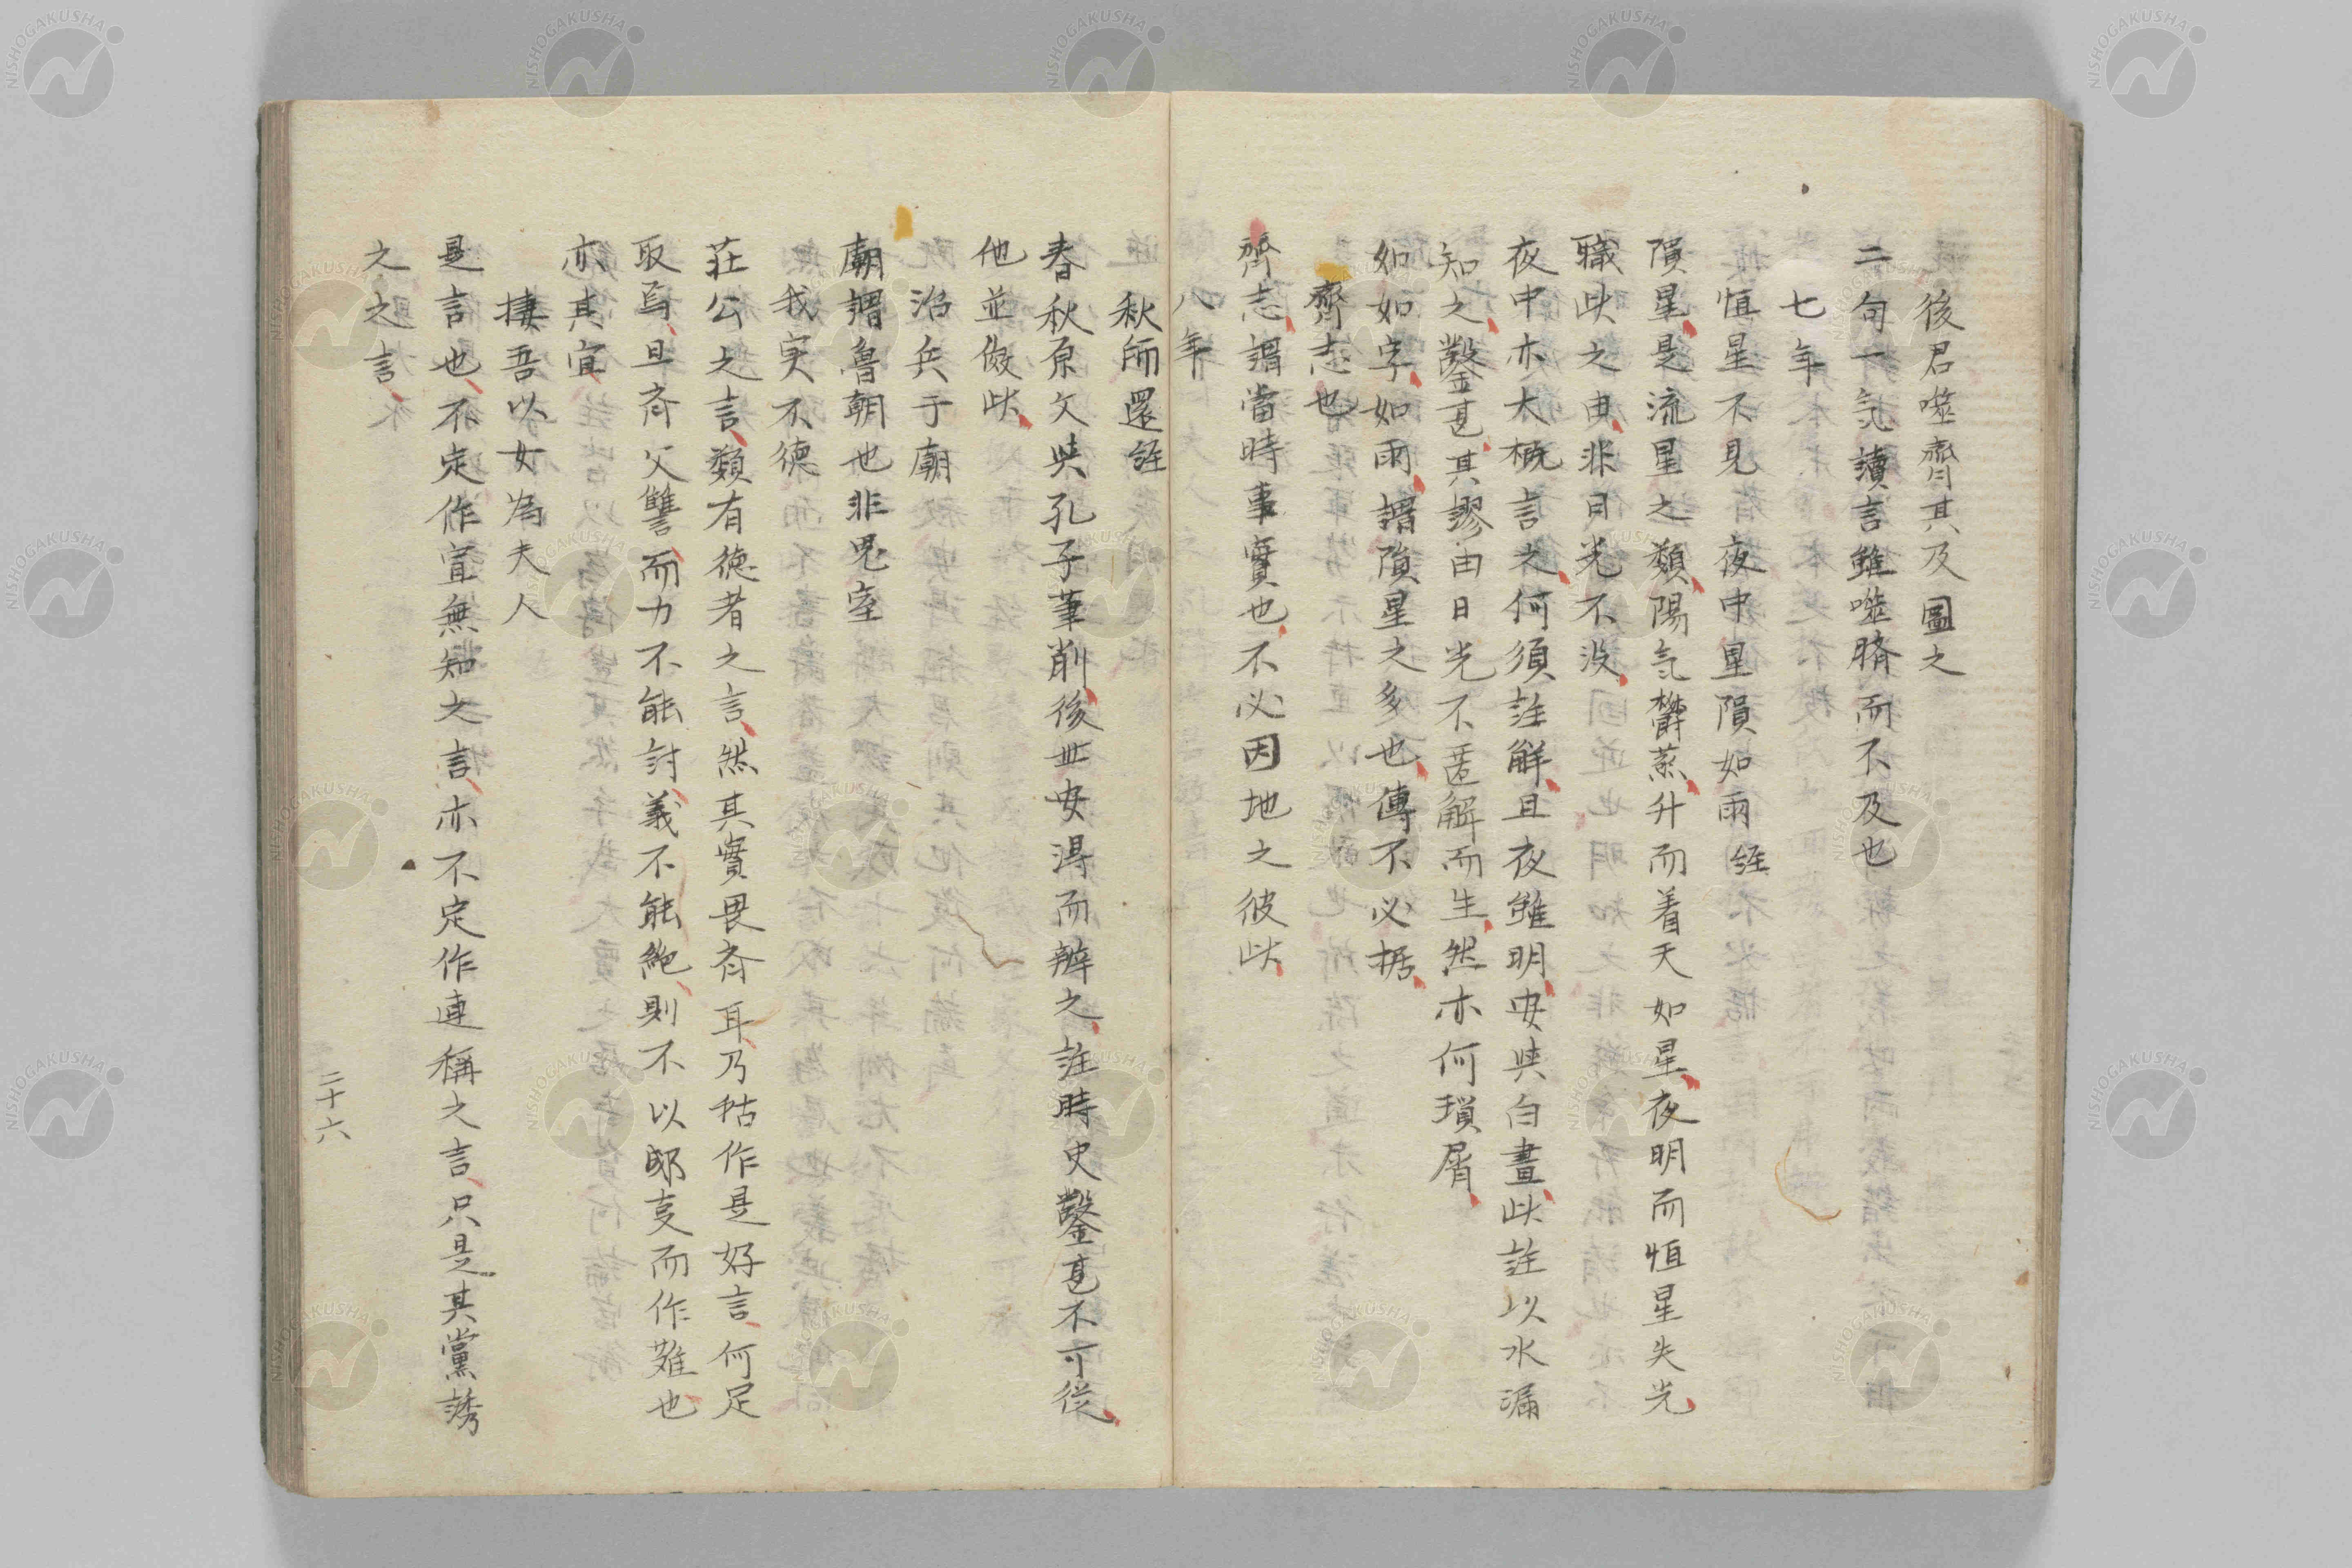 後君噬齊其及圖之
二句一気讀言雖噬臍而不及也
七年
恒星不見夜中星隕如雨 経
隕星是流星之類陽気欝蒸升而着天如星夜明而恒星失光
職此之由非日光不没
夜中亦大概言之何須註解且夜雖明安與白晝此註以水漏
知之鑿甚其謬由日光不匿解而生然亦何瑣屑
如如字如雨謂隕星之多也傳不必据
齊志也
齊志謂當時事實也不必因地之彼此
八年
秋師還経
春秋原文與孔子筆削後世安得而辨之註時史鑿甚不可從
他並倣此
治兵于廟
廟謂魯朝也非鬼室
我実不徳
荘公之言類有徳者之言然其實畏斉耳乃粘作是好言何足
取焉且斉父讐而力不能討義不能絶則不以郕叓而作難也
亦其宜
捷吾以女為夫人
是言也不定作宣無知之言亦不定作連稱之言只是其黨誘
之之言
二十六
NISHOGAKUSHA